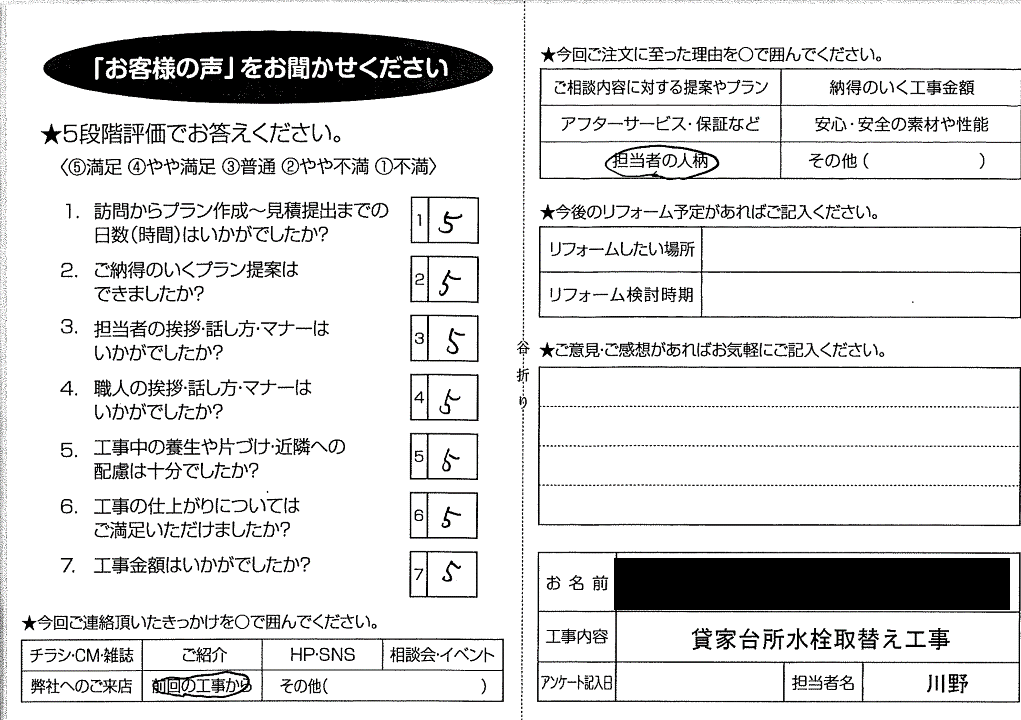 「お客様の声」をお聞かせください
★5段階評価でお答えください。
〈⑤満足 ④やや満足 ③普通 ②やや不満 ①不満〉
1. 訪問からプラン作成～見積提出までの
日数(時間)はいかがでしたか?
1 5
2. ご納得のいくプラン提案は
できましたか?
2 5
3. 担当者の挨拶・話し方・マナーは
いかがでしたか?
3 5
4. 職人の挨拶・話し方・マナーは
いかがでしたか?
4 5
5. 工事中の養生や片づけ・近隣への
配慮は十分でしたか?
5 5
6. 工事の仕上がりについては
ご満足いただけましたか?
6 5
7. 工事金額はいかがでしたか?
7 5
★今回ご連絡頂いたきっかけを○で囲んでください。
チラシ・CM・雑誌 ご紹介 HP・SNS 相談会・イベント
弊社へのご来店 前回の工事から その他( )
谷折り
★今回ご注文に至った理由を○で囲んでください。
ご相談内容に対する提案やプラン 納得のいく工事金額
アフターサービス・保証など 安心・安全の素材や性能
担当者の人柄 その他( )
★今後のリフォーム予定があればご記入ください。
リフォームしたい場所
リフォーム検討時期
★ご意見・ご感想があればお気軽にご記入ください。
お名前
工事内容 貸家台所水栓取替え工事
アンケート記入日 担当者名 川野